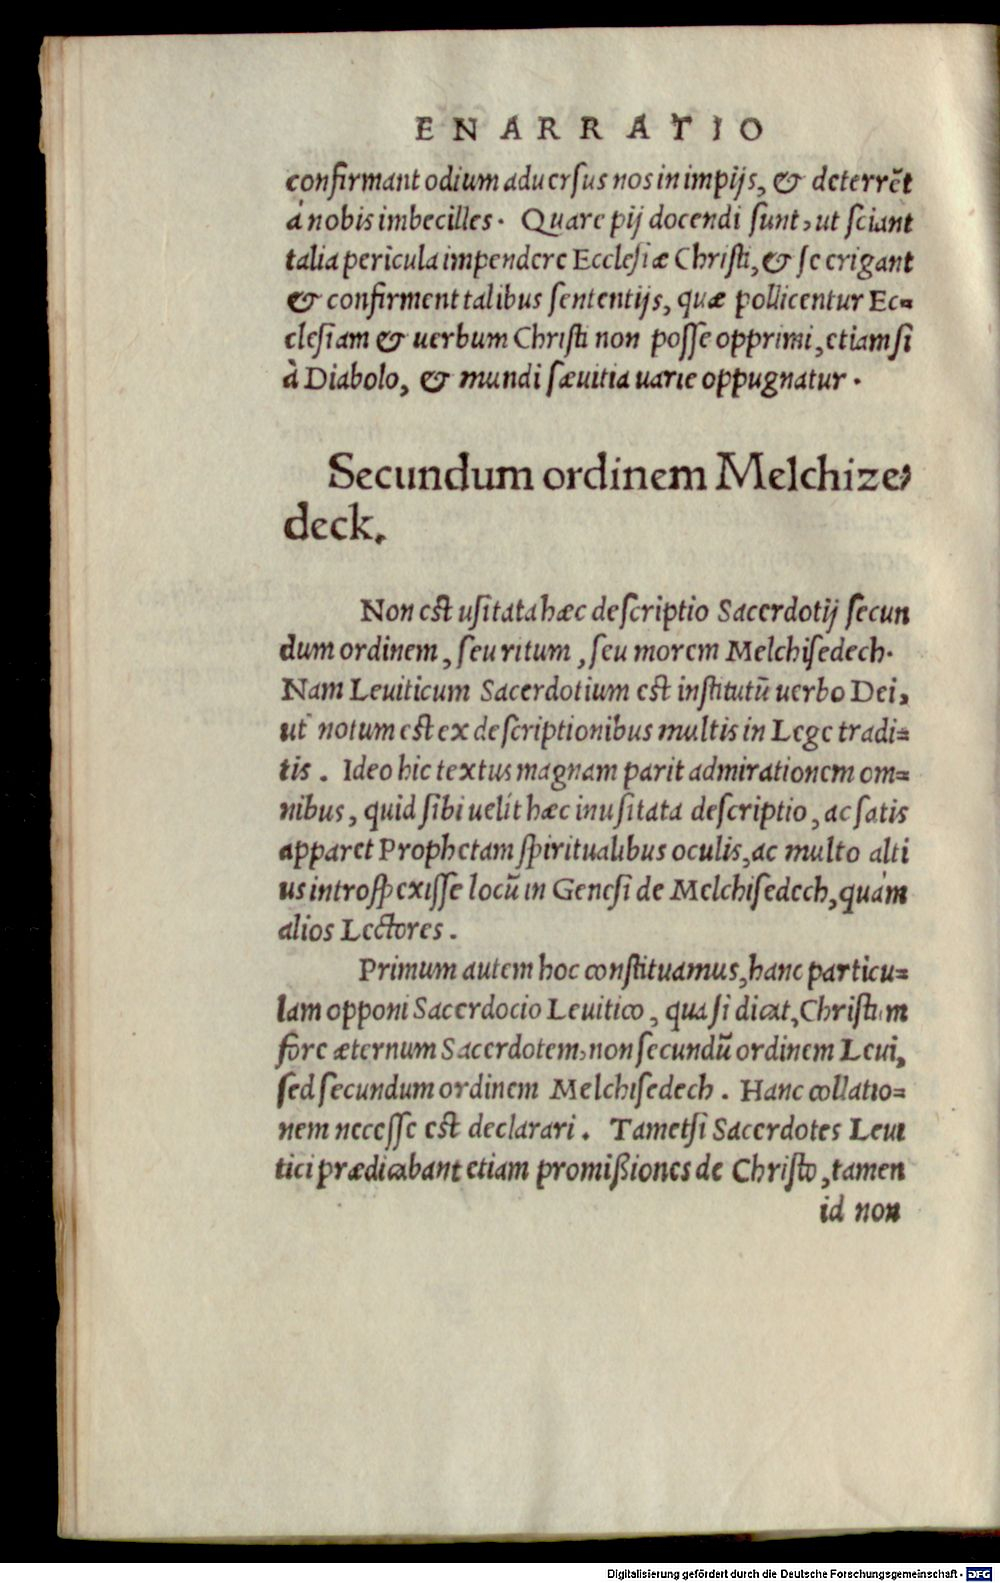 ENARRATIO
confirmant odium aduersus nos in impijs, & deterrẽt
à nobis imbecilles. Quare pij docendi sunt, ut sciant
talia pericula impendere Ecclesiæ Christi, & se erigant
& confirment talibus sententijs, quæ pollicentur Ec=
clesiam & uerbum Christi non posse opprimi, etiamsi
à Diabolo, & mundi sæuitia uarie oppugnatur.
Secundum ordinem Melchize-
deck.
Non est usitata hæc descriptio Sacerdotij secun
dum ordinem, seu ritum, seu morem Melchisedech.
Nam Leuiticum Sacerdotium est institutũ uerbo Dei,
ut notum est ex descriptionibus multis in Lege tradi=
tis. Ideo hic textus magnam parit admirationem om=
nibus, quid sibi uelit hæc inusitata descriptio, ac satis
apparet Prophetam spiritualibus oculis, ac multo alti
us introspexisse locũ in Genesi de Melchisedech, quàm
alios Lectores.
Primum autem hoc constituamus, hanc particu=
lam opponi Sacerdocio Leuitico, quasi dicat, Christum
fore æternum Sacerdotem, non secundũ ordinem Leui,
sed secundum ordinem Melchisedech. Hanc collatio=
nem necesse est declarari. Tametsi Sacerdotes Leui
tici prædicabant etiam promißiones de Christo, tamen
id non
Digitalisierung gefördert durch die Deutsche Forschungsgemeinschaft - DFG